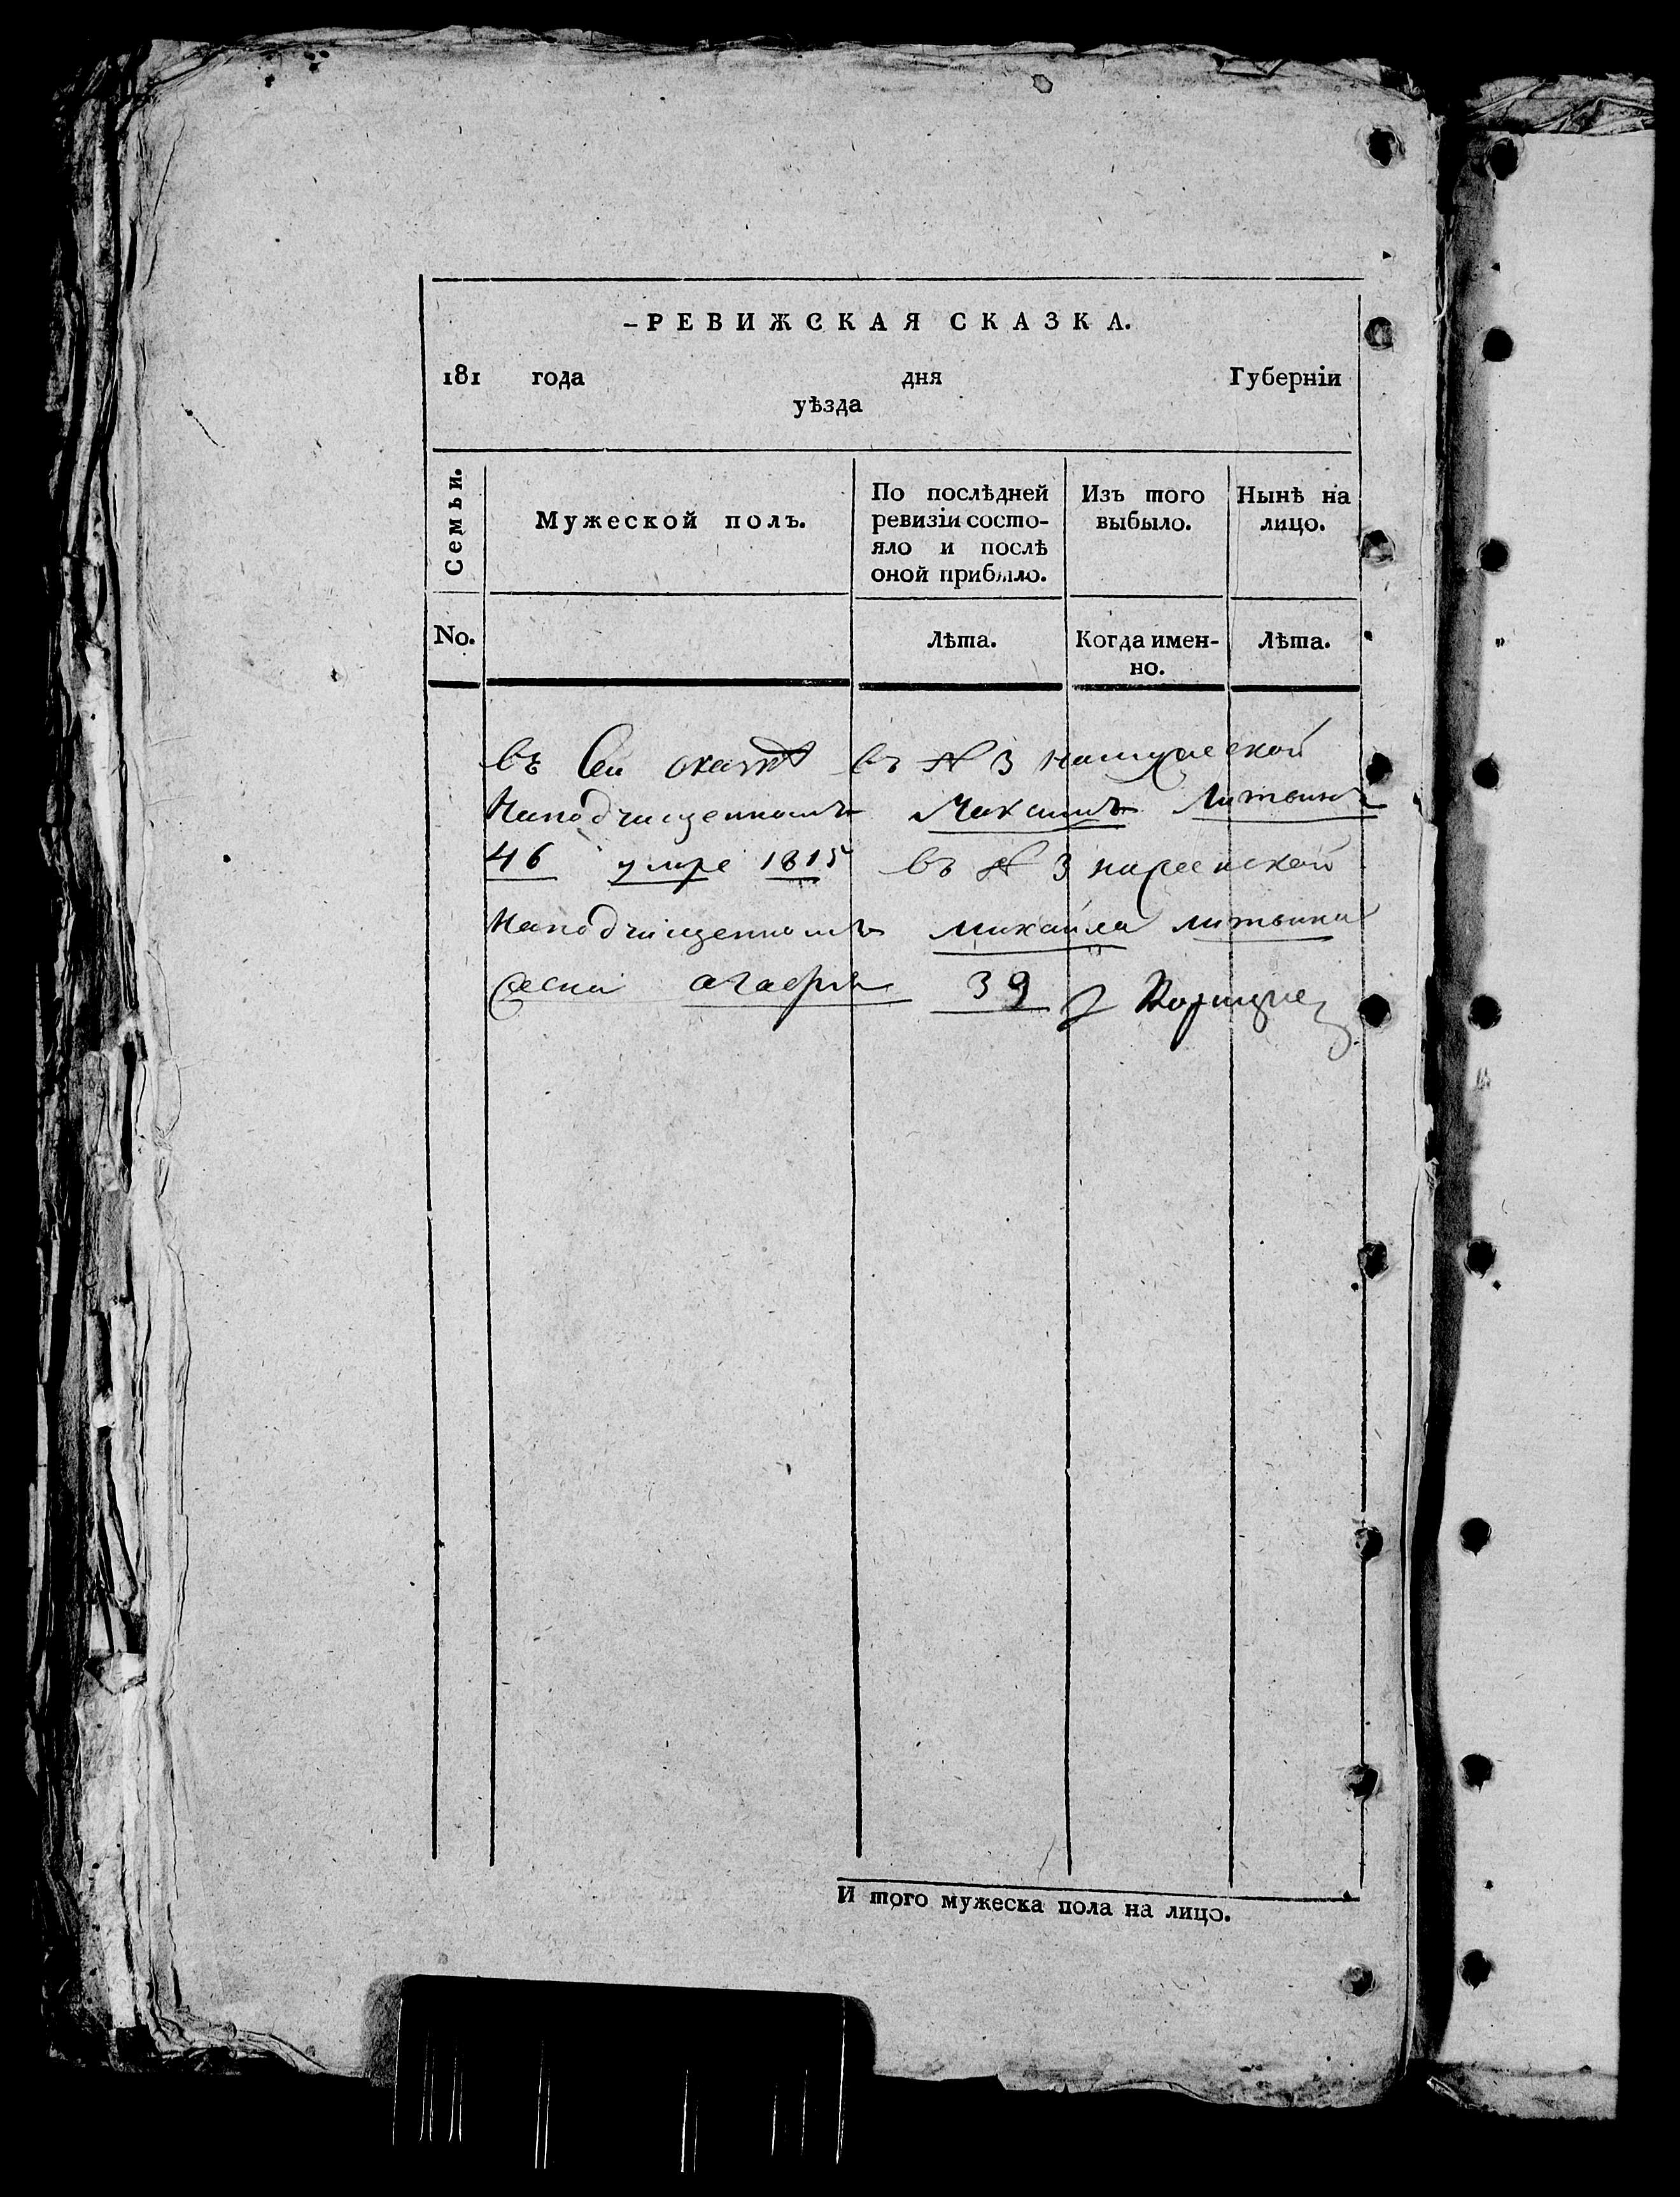 -РЕВИЖСКАЯ СКАЗКА.
181 года дня Губернїи
уѣзда
Семьи.
Мужеской полъ.
По послѣдней ревизїи состо-
яло и послѣ
оной прибыло.
Изъ того
выбыло.
Нынѣ на
лицо.
No.
Лѣта.
Когда имен-
но.
Лѣта.
въ сей въ № 3
Наподчищенномъ Максимъ Литвинъ
46 умре 1815 въ № 3
Наподчищенномъ михайла литвина
39
И того мужеска пола на лицо.